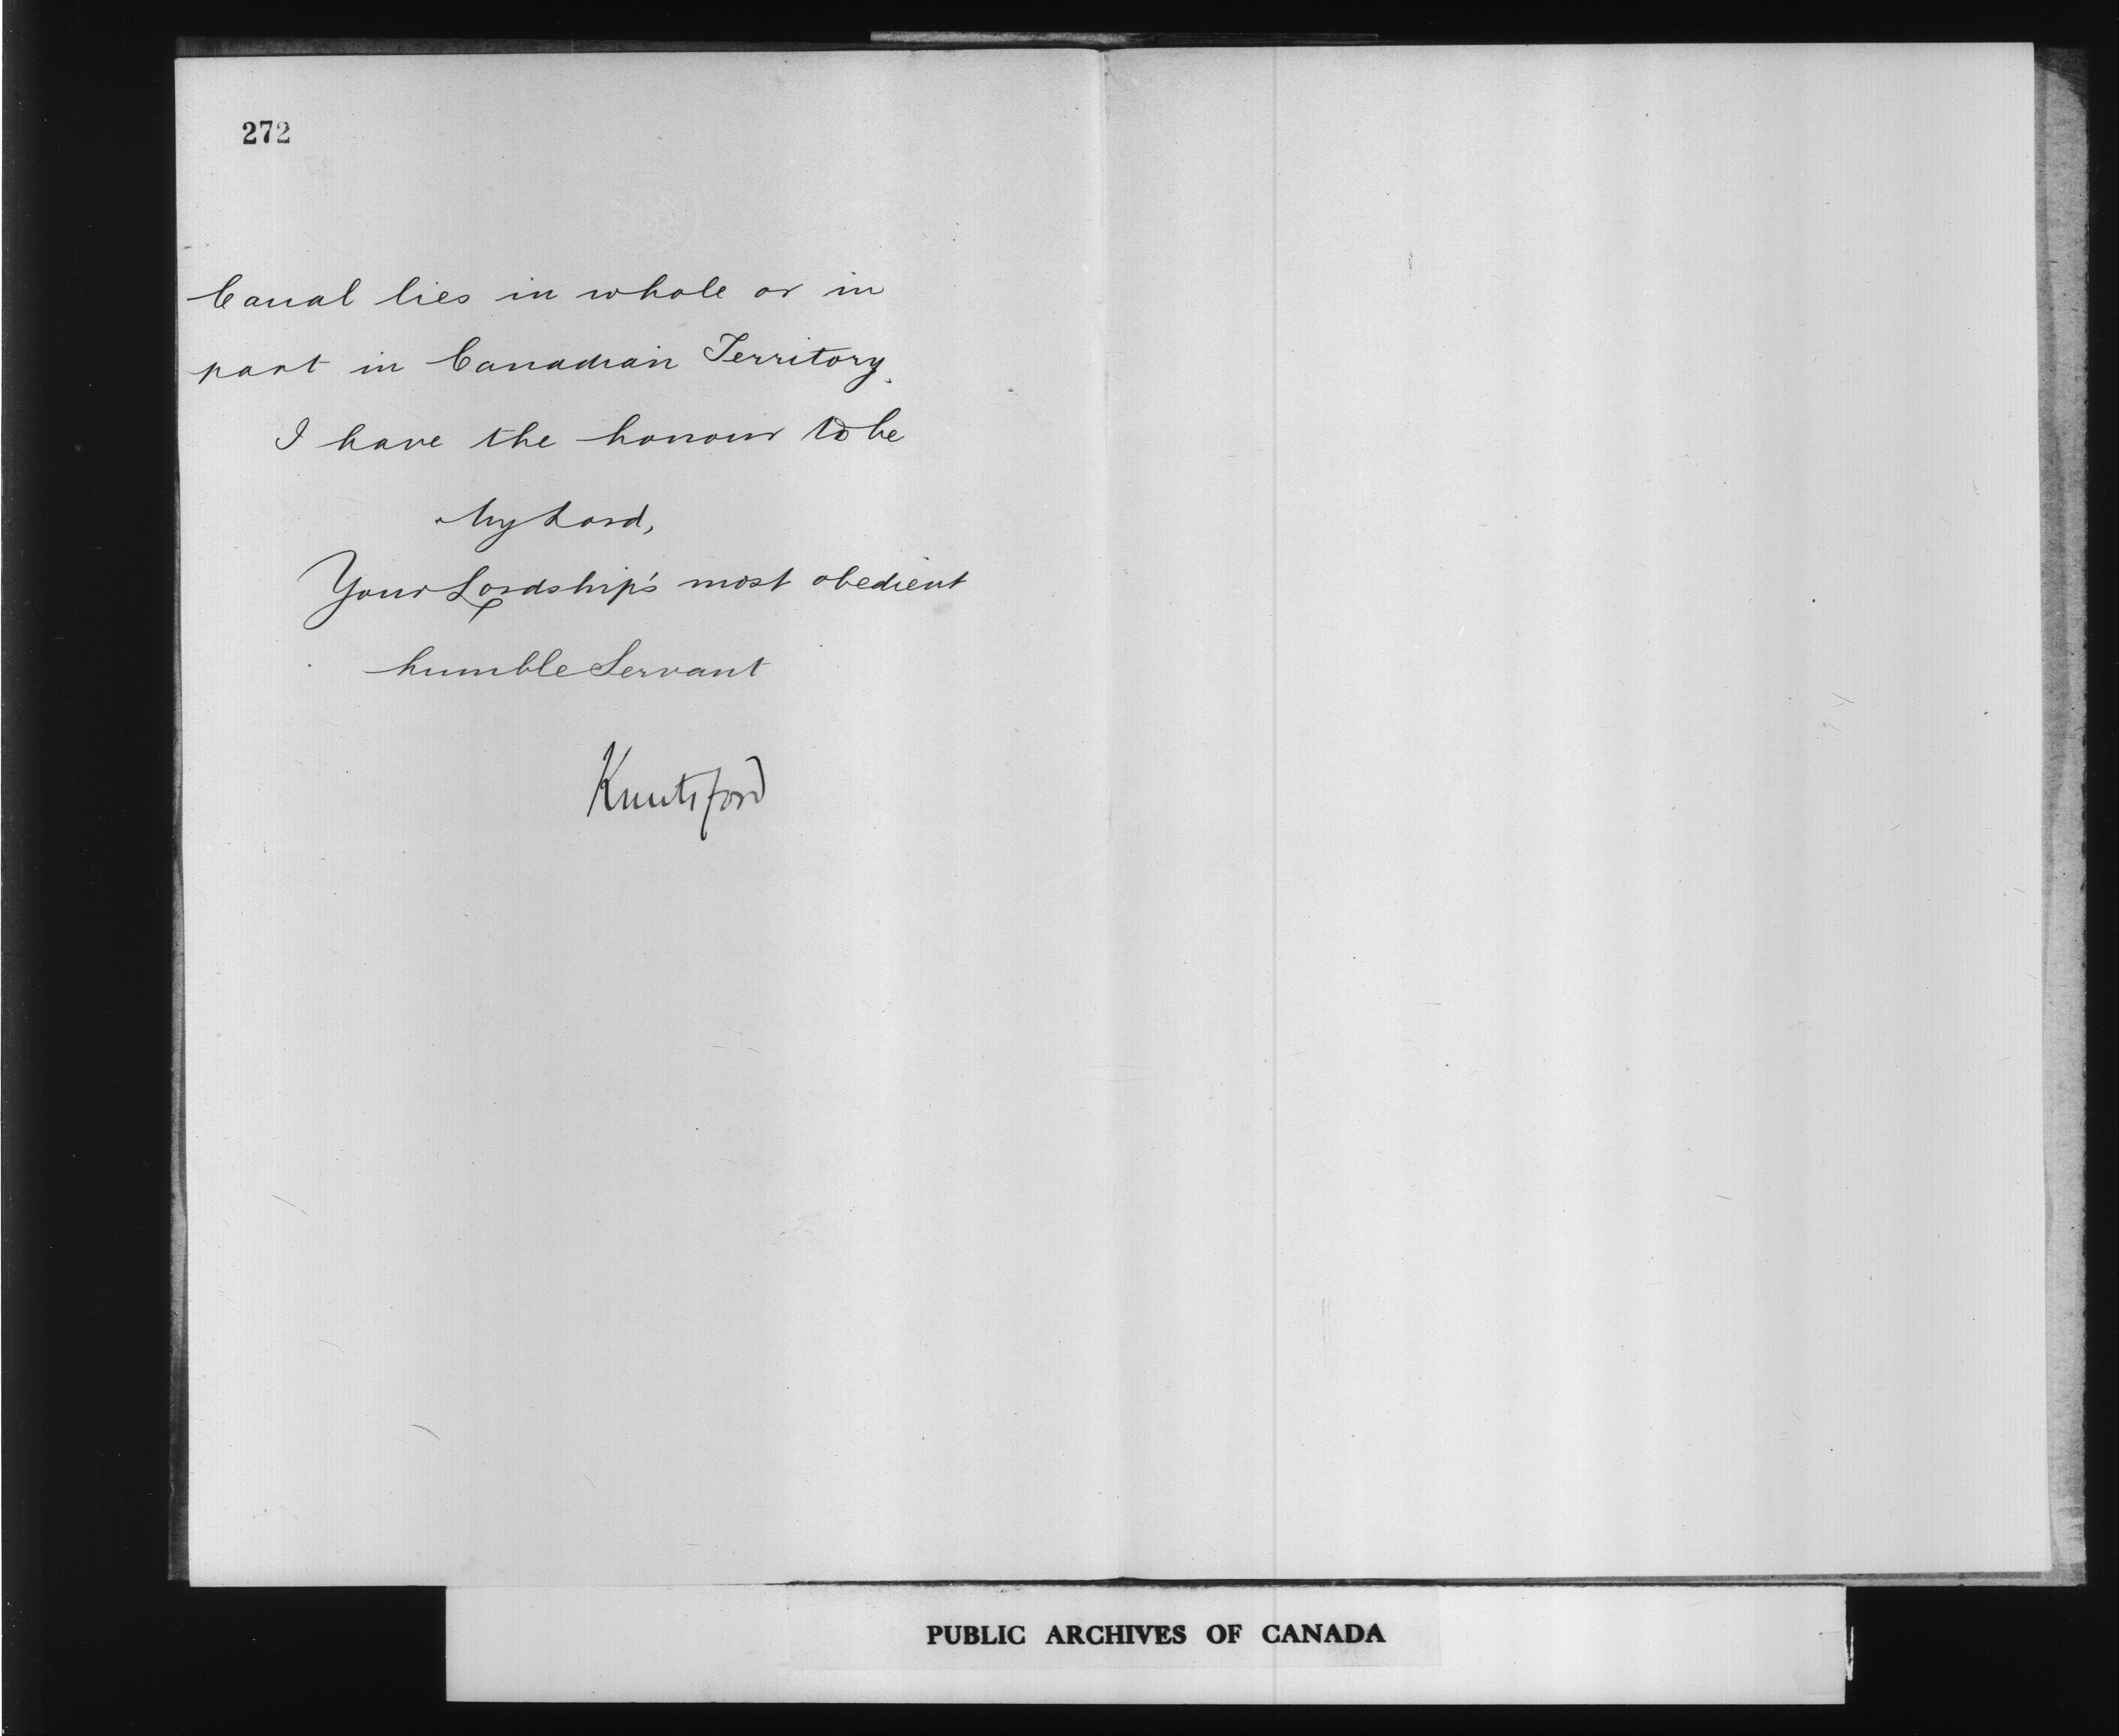 272
Canal lies in whole or in
part in Canadian Territory.
I have the honour to be
My Lord,
Your Lordship's most obedient
humble Servant
Knutsford
PUBLIC ARCHIVES OF CANADA